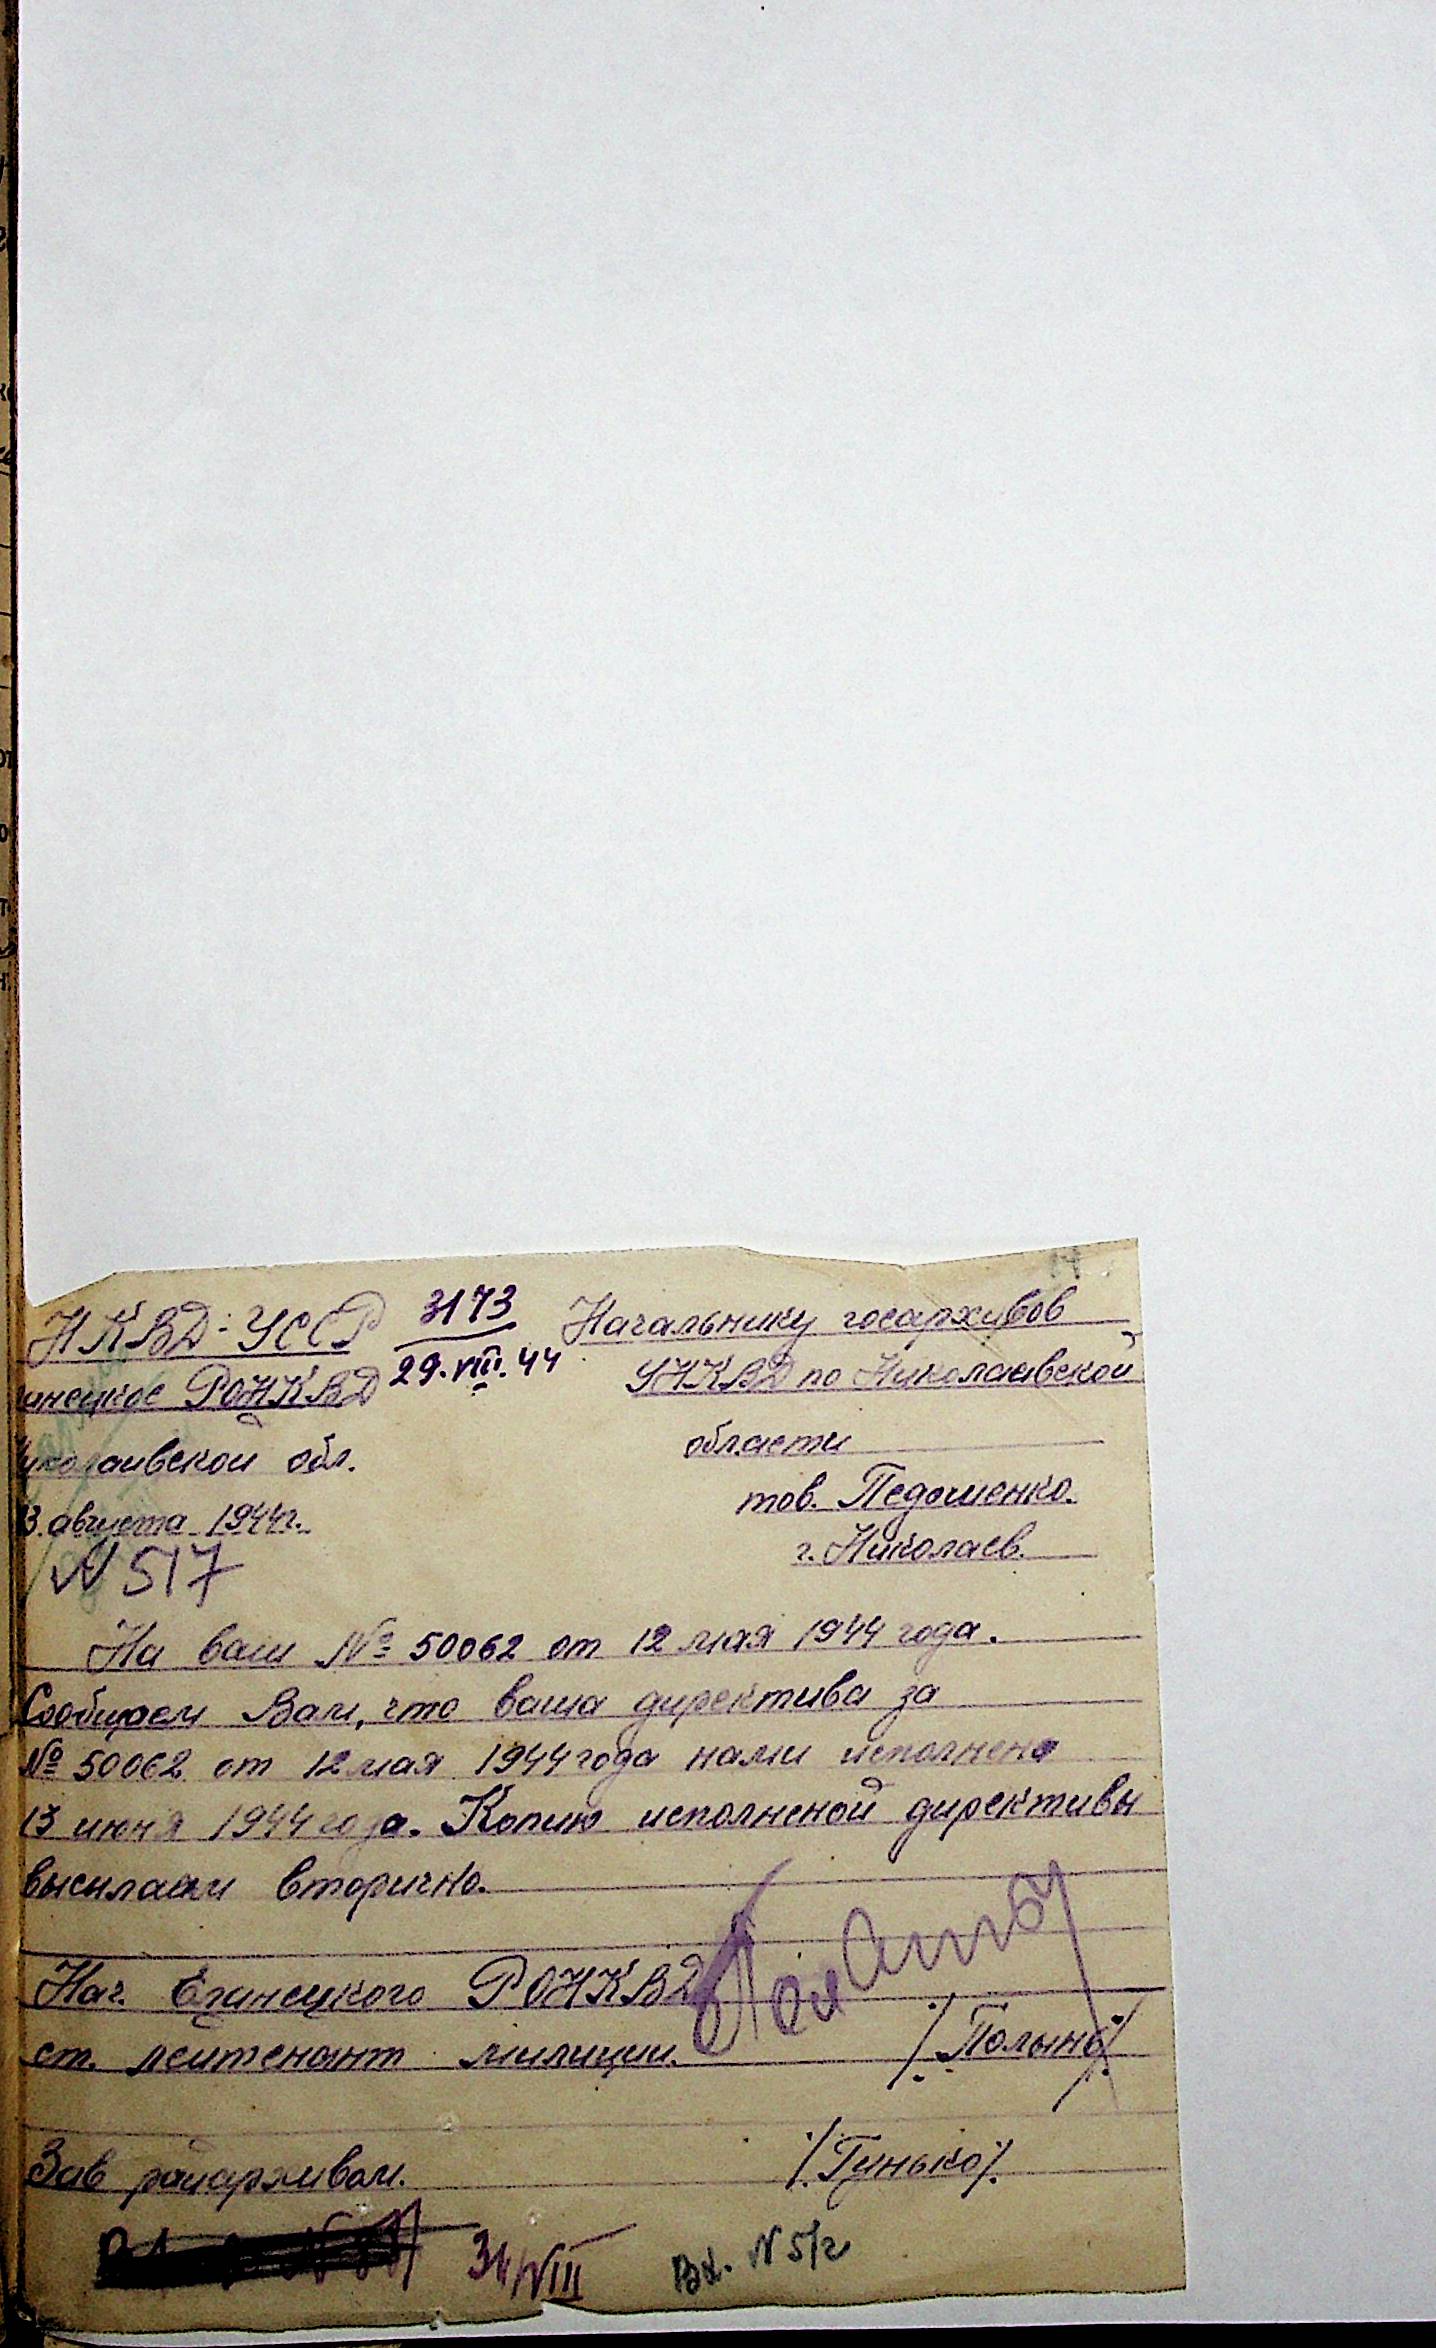 НКВД-УССР
инецкое РОНКВД
иколаивской обл.
13 августа 1944г.
N 517
3173
29.VIII.44
Начальнику госархивов
УНКВД по Николаивской
области
тов. Педошенко.
г. Николаев.
На ваш № 50062 от 12 мая 1944 года.
Сообщаем Вам, что ваша директива за
№ 50062 от 12 мая 1944 года нами исполнена
13 июня 1944 года. Копию исполненой директивы
высылаем вторично.
Нач. Еланецкого РОНКВД
ст. лейтенант милиции. /Полынь/
Зав райархивом. /Гунько/.
31/VIII
Вх. N 5/2